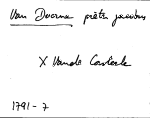 Van Doorne prêtre jacobus
X Vande Casteele
1791 - 7